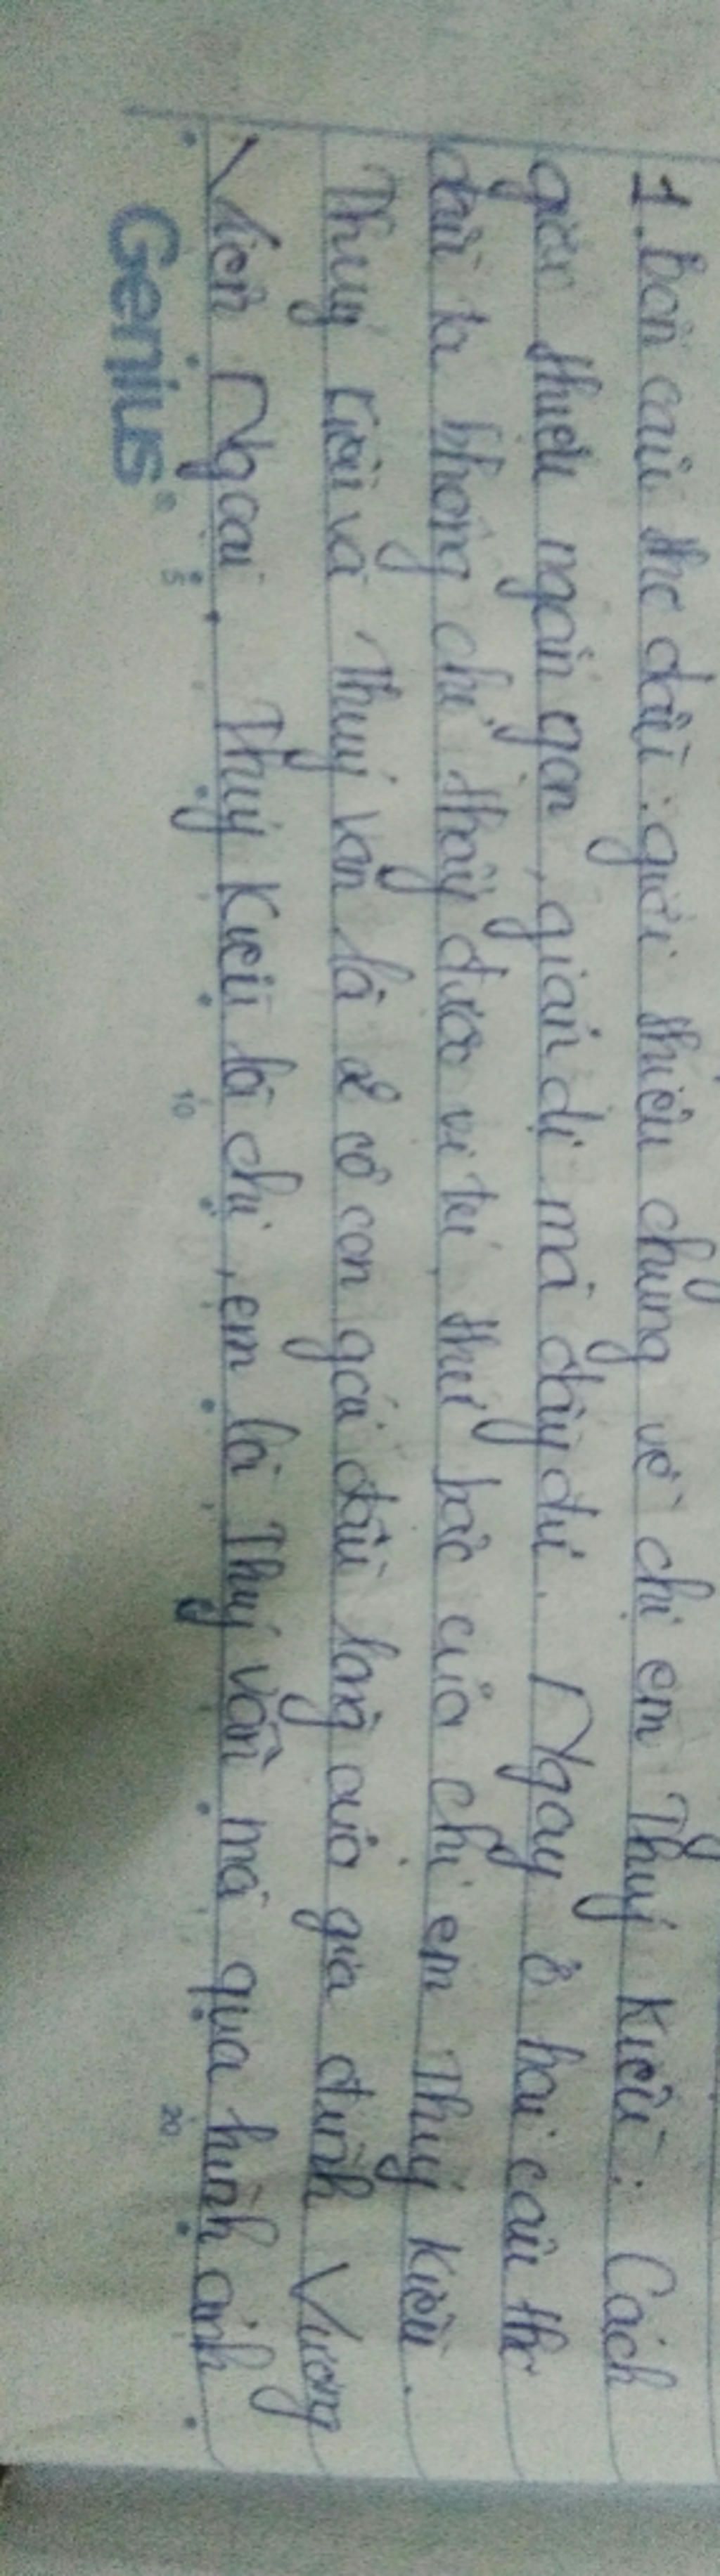 1. Bốn câu thơ đầu: giới thiệu chung về chị em Thuý Kiều: Cách
giới thiệu ngắn gọn, giản dị mà đầy đủ. Ngay ở hai câu thơ
đầu ta không chỉ thấy được vị trí, thứ bậc của chị em Thuý Kiều.
Thuý Kiều và Thuý Vân là 2 cô con gái đầu lòng của gia đình Vương
Viên Ngoại. Thuý Kiều là chị, em là Thuý Vân mà qua hình ảnh
Genius
5 10 20